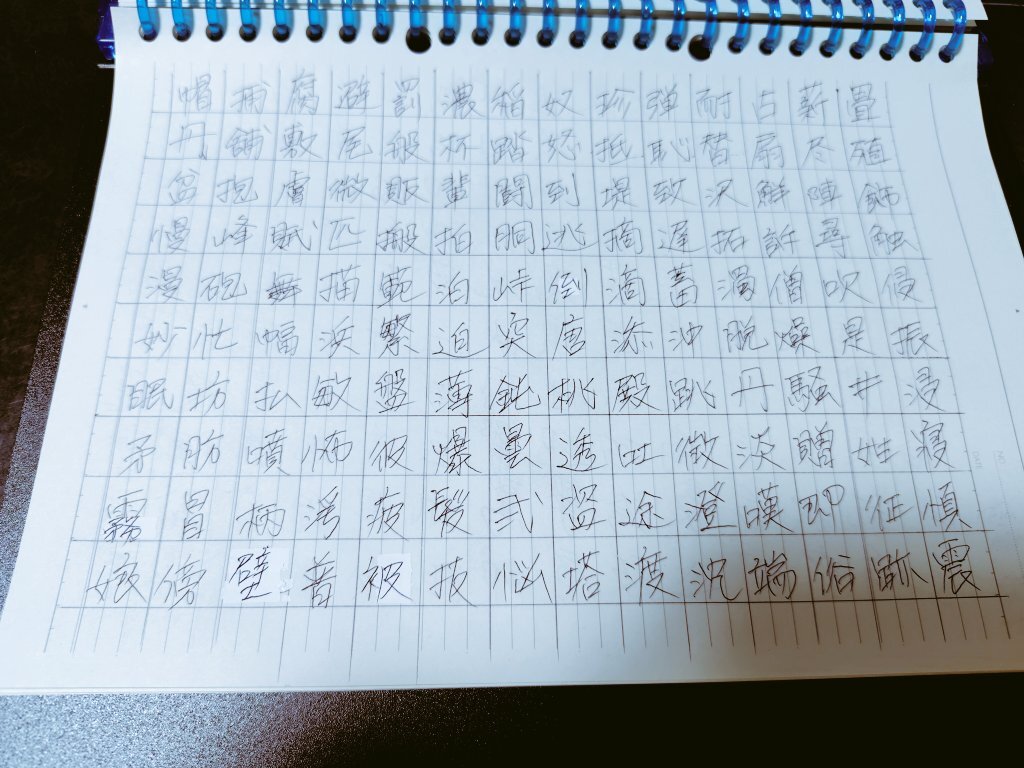 畳殖飾触侵振浸寝慎震
薪尽陣尋吹是井姓征跡
占扇鮮訴僧燥騒贈即俗
耐替沢拓濁脱丹淡嘆端
弾恥致遅蓄沖跳徴澄沈
珍抵堤摘滴添殿吐途渡
奴怒到逃倒唐桃透盗塔
稲踏闘胴峠突鈍曇弐悩
濃杯輩拍泊迫薄爆髪抜
罰般販搬範繁盤彼疲被
避尾微匹描浜敏怖浮普
腐敷膚賦舞幅払噴柄壁
捕舗抱峰砲忙坊肪冒傍
帽凡盆慢漫妙眠矛霧娘